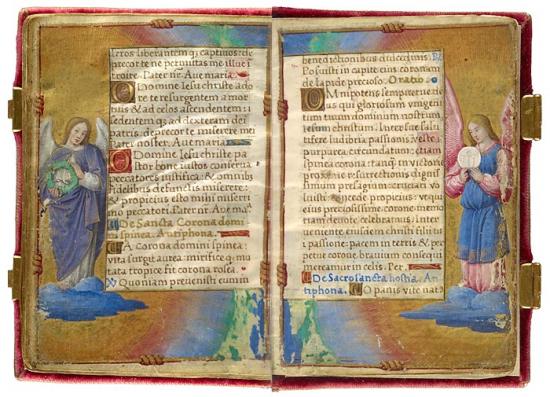 feros liberantem q; captiuos: de
precor te ne permittas me illuc i
troire. Pater nr̄. Aue maria.
O Domine Iesu christe ado
ro te resurgentem a mortu
bus & ad celos ascendentem: s
sedentem q; ad dexteram dei
patris. deprecor te miserere mei
Pater noster. Aue maria.
O Domine Iesu christe pa
stor bone iustos conserua
peccatores iustifica: & omnib;
fidelibus defunctis miserere:
& propicius esto mihi miseri
mo peccatori. Pater nr̄. Aue ma
De Sancta Corona domi
spinea. Antiphona.
A corona domini spinea:
vita surgit aurea: mirifice q; mu
tata tropice fit corona rosea.
Quoniam preuenisti eum in
benedictionibus dulcedinis.
Posuisti in capite eius coronam
de lapide precioso. Oratio.
Omnipotens sempiterne deus
qui gloriosum vnigeni
tum tuum dominum nostrum
iesum christum. Inter sue salu
tifere ludibria passionis: veste
purpurea circumdatum: etiam
spinea corona: tanq; in victorie
resurrectionis
fimum presagium:
voluisti.
eius preciosissime corone: memo
riam deuote celebramus: Inter
ueniente eiusdem christi filii tui
passione: pacem in terris & per
petue corone, brauium consequi
mereamur in celis. Per.
De Sacrosancta hostia. An
tiphona. O panis vite nat